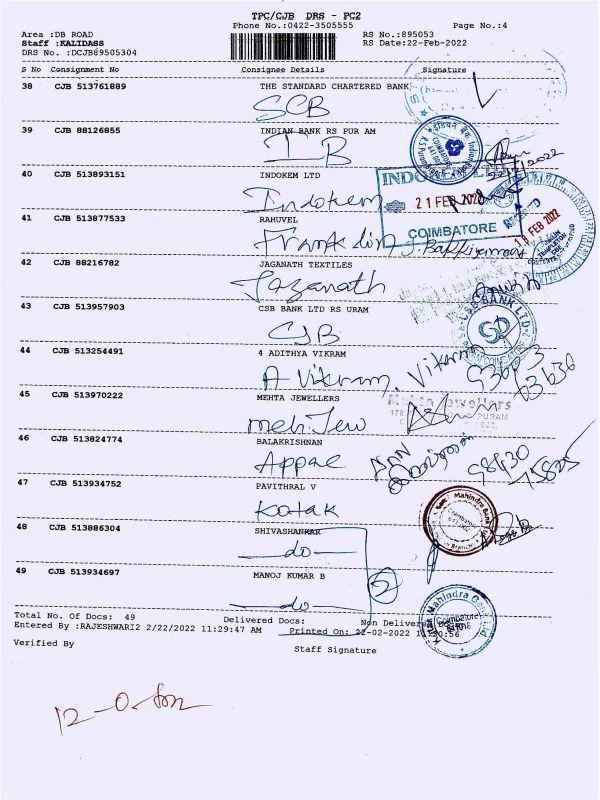 TPC/CJB DRS - PC2
Phone No.:0422-3505555 Page No.:4
Area :DB ROAD RS No.:895053
Staff :KALIDASS RS Date:22-Feb-2022
DRS No. :DCJB89505304
S No Consignment No Consignee Details Signature
38 CJB 513761889 THE STANDARD CHARTERED BANK
SCB
39 CJB 88126855 INDIAN BANK RS PUR AM
IB
22/2/2022
40 CJB 513893151 INDOKEM LTD
Indokem
21 FEB 2022
COIMBATORE
41 CJB 513877533 RAHUVEL
Franklin
19 FEB 2022
42 CJB 88216782 JAGANATH TEXTILES
Jaganath
43 CJB 513957903 CSB BANK LTD RS URAM
CSB BANK LTD
CJB
44 CJB 513254491 4 ADITHYA VIKRAM
A Vikram. Vikram
45 CJB 513970222 MEHTA JEWELLERS
Mehta Jewellers
46 CJB 513824774 BALAKRISHNAN
Appae
47 CJB 513934752 PAVITHRAL V
Kotak
Mahindra Bank
48 CJB 513886304 SHIVASHANKAR
-do-
49 CJB 513934697 MANOJ KUMAR B
-do-
2
Kotak Mahindra Bank Ltd
Coimbatore
Total No. Of Docs: 49 Delivered Docs: Non Delivered Docs:
Entered By :RAJESHWARI2 2/22/2022 11:29:47 AM Printed On: 22-02-2022 11:30:56
Verified By Staff Signature